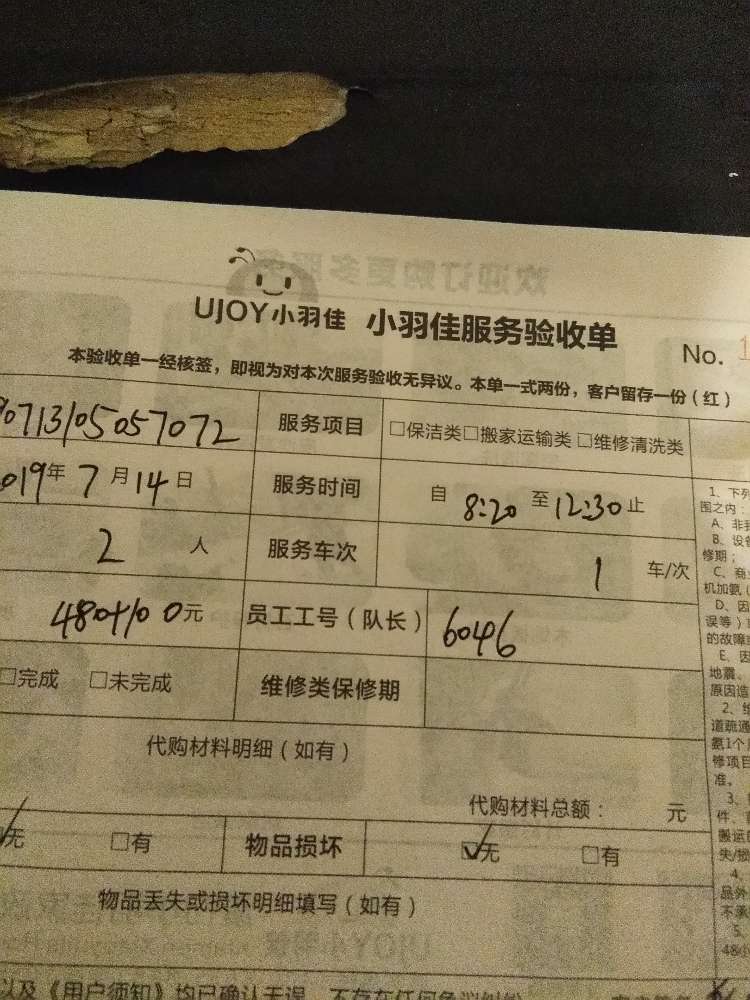 UJOY小羽佳 小羽佳服务验收单
No. 1
本验收单一经核签，即视为对本次服务验收无异议。本单一式两份，客户留存一份（红）
90713105057072 服务项目 □保洁类□搬家运输类 □维修清洗类
2019年 7 月 14 日 服务时间 自 8:20 至 12:30 止
2 人 服务车次 1 车/次
480+100元 员工工号（队长） 6046
□完成 □未完成 维修类保修期
代购材料明细（如有）
代购材料总额： 元
☑无 □有 物品损坏 ☑无 □有
物品丢失或损坏明细填写（如有）
以及《用户须知》均已确认无误，不存在任何争议纠纷
1、下列
围之内：
A、非
B、设备
修期；
C、商业
机加氨（
D、因
误等）
的故障
E、因
地震、
原因造
2、维
道疏通
氨1个月
修项目
准。
3、
件、
搬运
失/损
4、
品外
不承
5、
48小